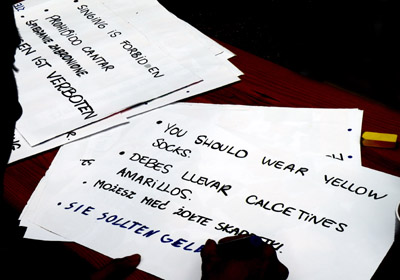 • SINGING IS FORBIDDEN
• PROHIBIDO CANTAR
• ŚPIEWANIE ZABRONIONE
GEN IST VERBOTEN
• YOU SHOULD WEAR YELLOW
SOCKS.
• DEBES LLEVAR CALCETINES
AMARILLOS.
• MOŻESZ MIEĆ ŻÓŁTE SKARPETKI.
• SIE SOLLTEN GELB